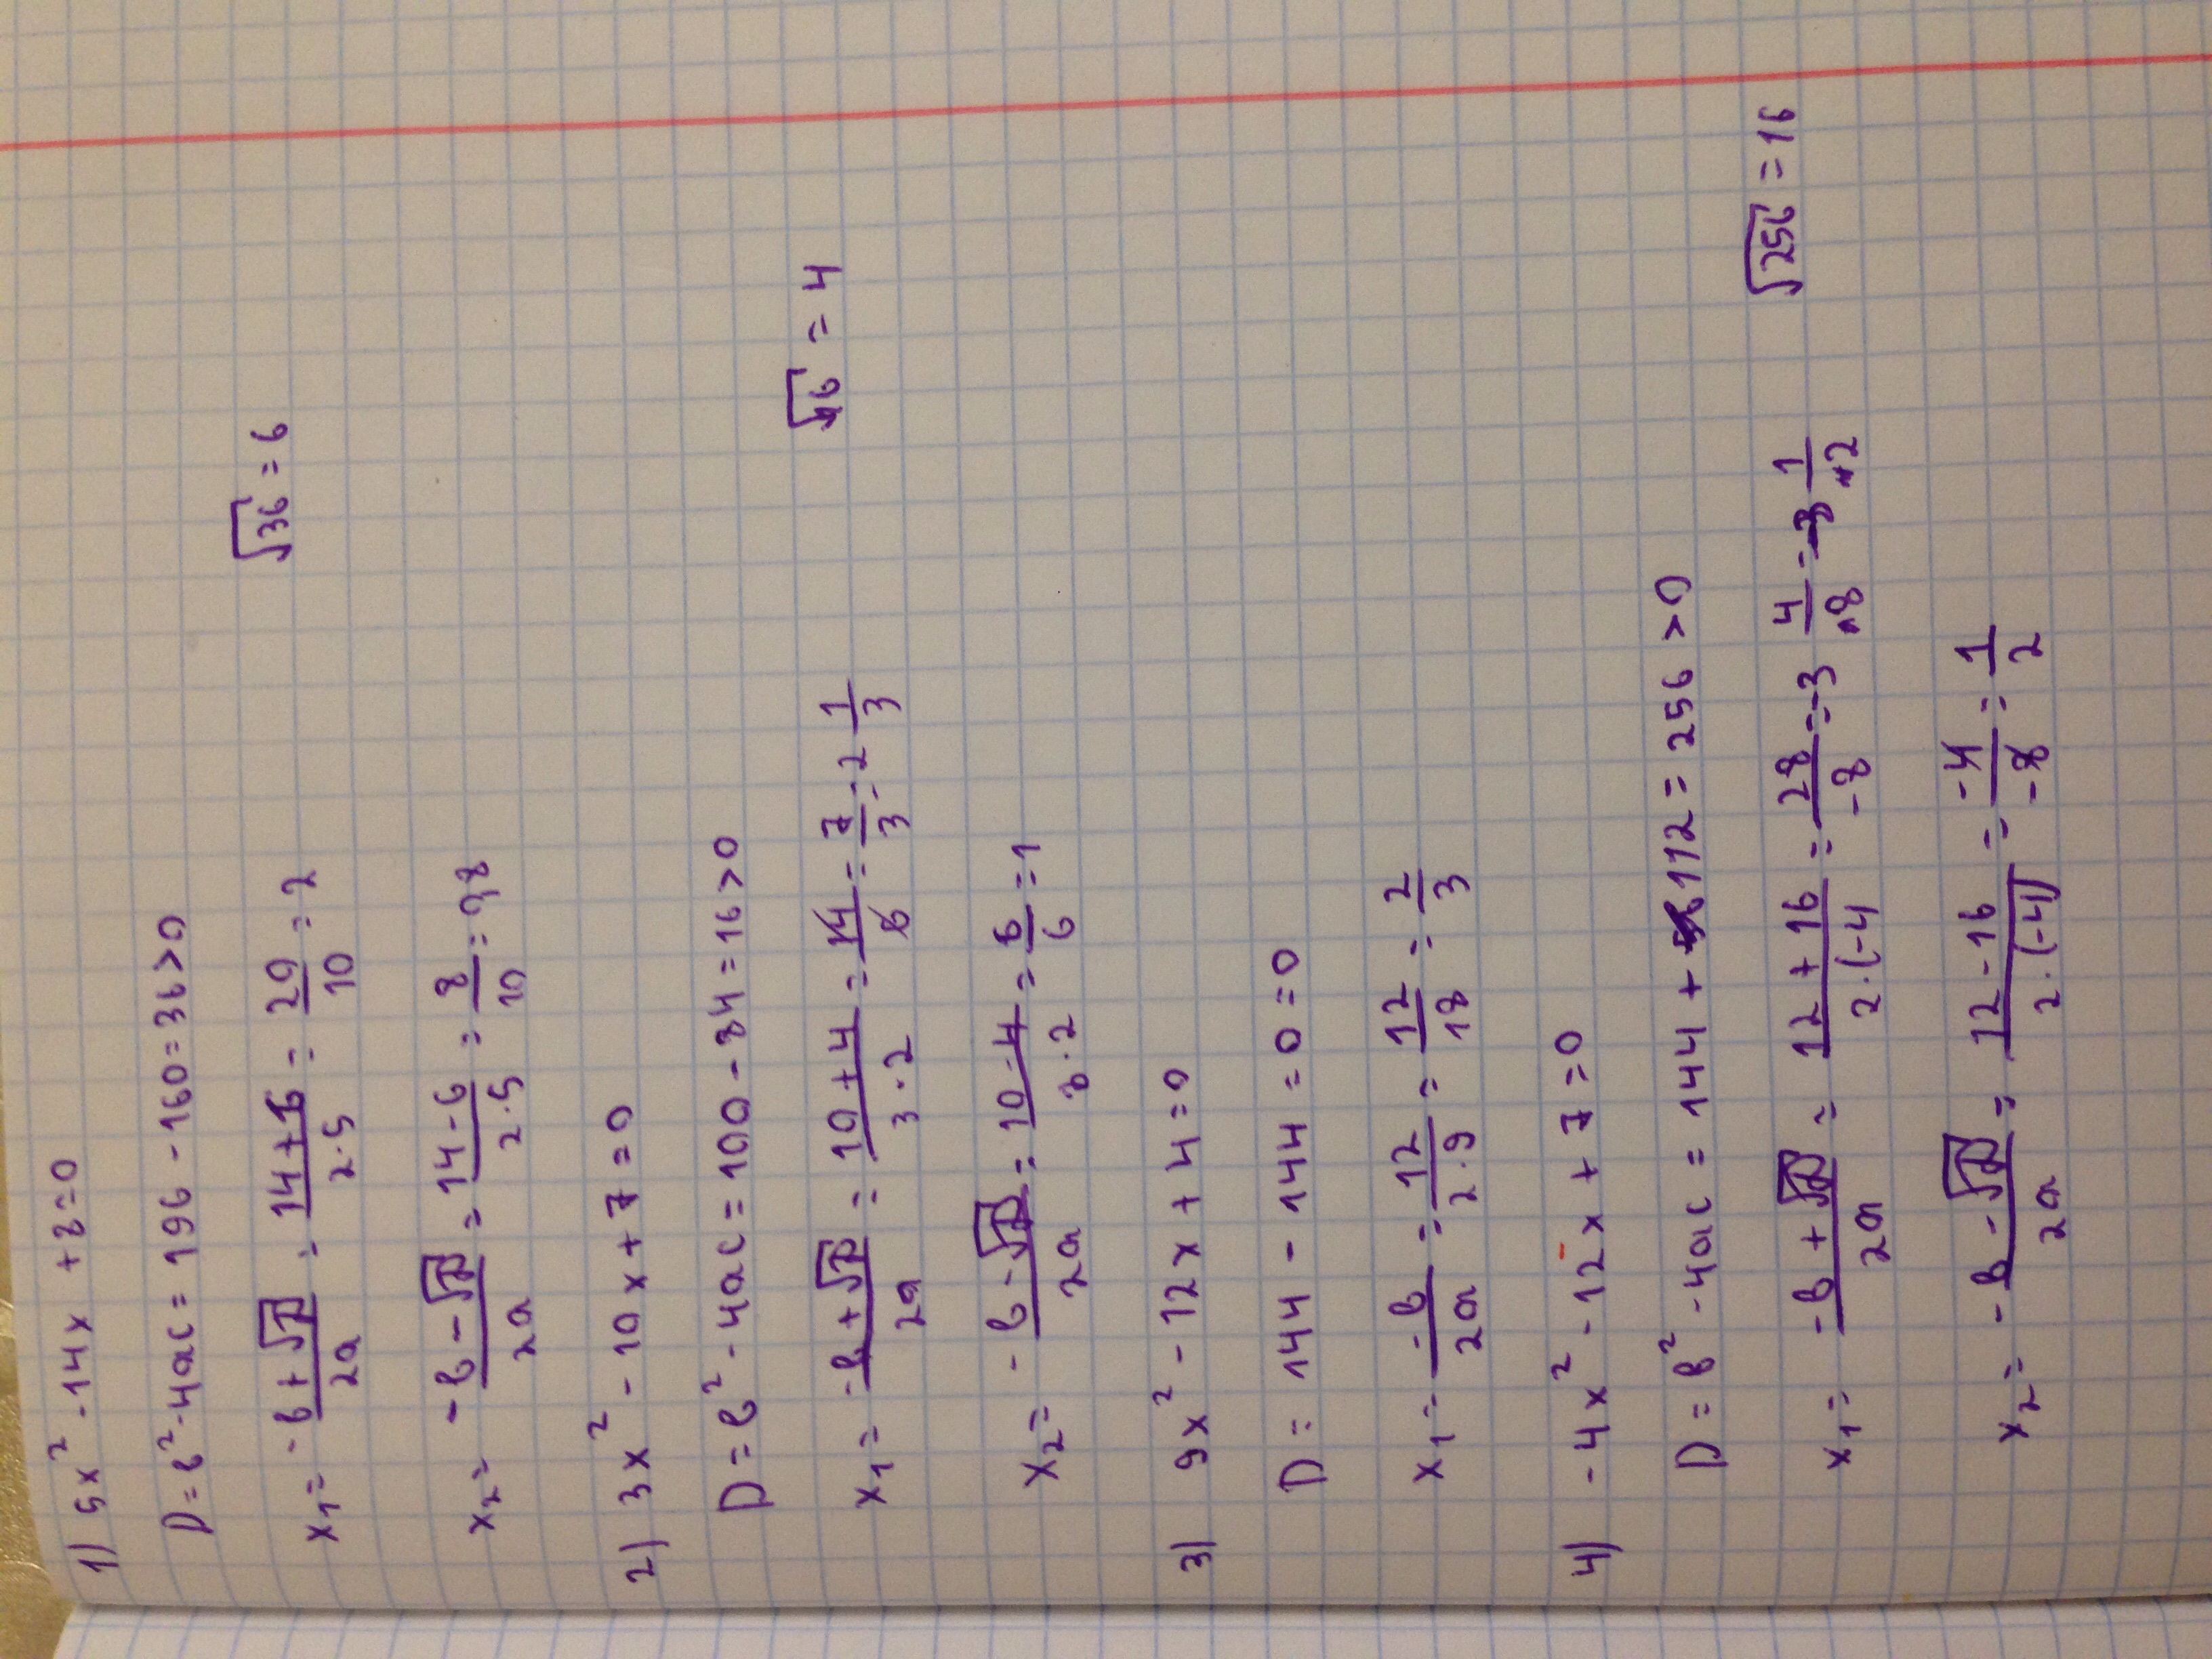 1) 5x² - 14x + 8 = 0
D = b² - 4ac = 196 - 160 = 36 > 0
x₁ = (-b + √D)/(2a) = (14 + 6)/(2·5) = 20/10 = 2     √36 = 6
x₂ = (-b - √D)/(2a) = (14 - 6)/(2·5) = 8/10 = 0,8
2) 3x² - 10x + 7 = 0
D = b² - 4ac = 100 - 84 = 16 > 0
x₁ = (-b + √D)/(2a) = (10 + 4)/(3·2) = 14/6 = 7/3 = 2 1/3     √16 = 4
x₂ = (-b - √D)/(2a) = (10 - 4)/(3·2) = 6/6 = 1
3) 9x² - 12x + 4 = 0
D = 144 - 144 = 0 = 0
x₁ = -b/(2a) = 12/(2·9) = 12/18 = 2/3
4) -4x² - 12x + 7 = 0
D = b² - 4ac = 144 + 112 = 256 > 0
x₁ = (-b + √D)/(2a) = (12 + 16)/(2·(-4) = 28/-8 = -3 4/8 = -3 1/2     √256 = 16
x₂ = (-b - √D)/(2a) = (12 - 16)/(2·(-4)) = -4/-8 = 1/2